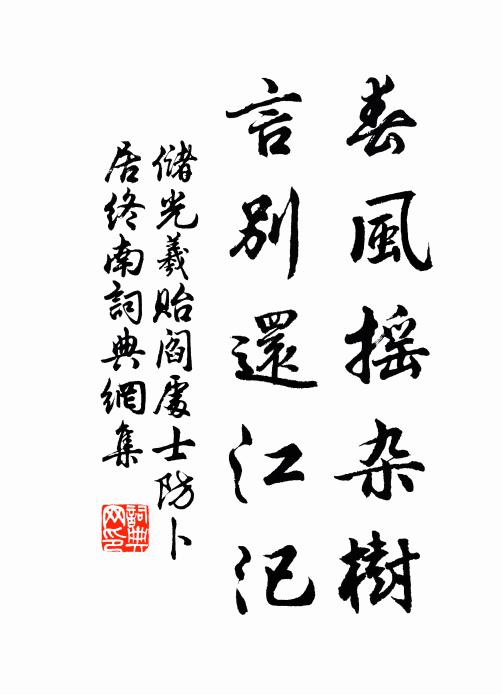 春風搖杂樹
言別還江汜
儲光羲貽閻處士防卜
居終南詞典網集
詞典
网印